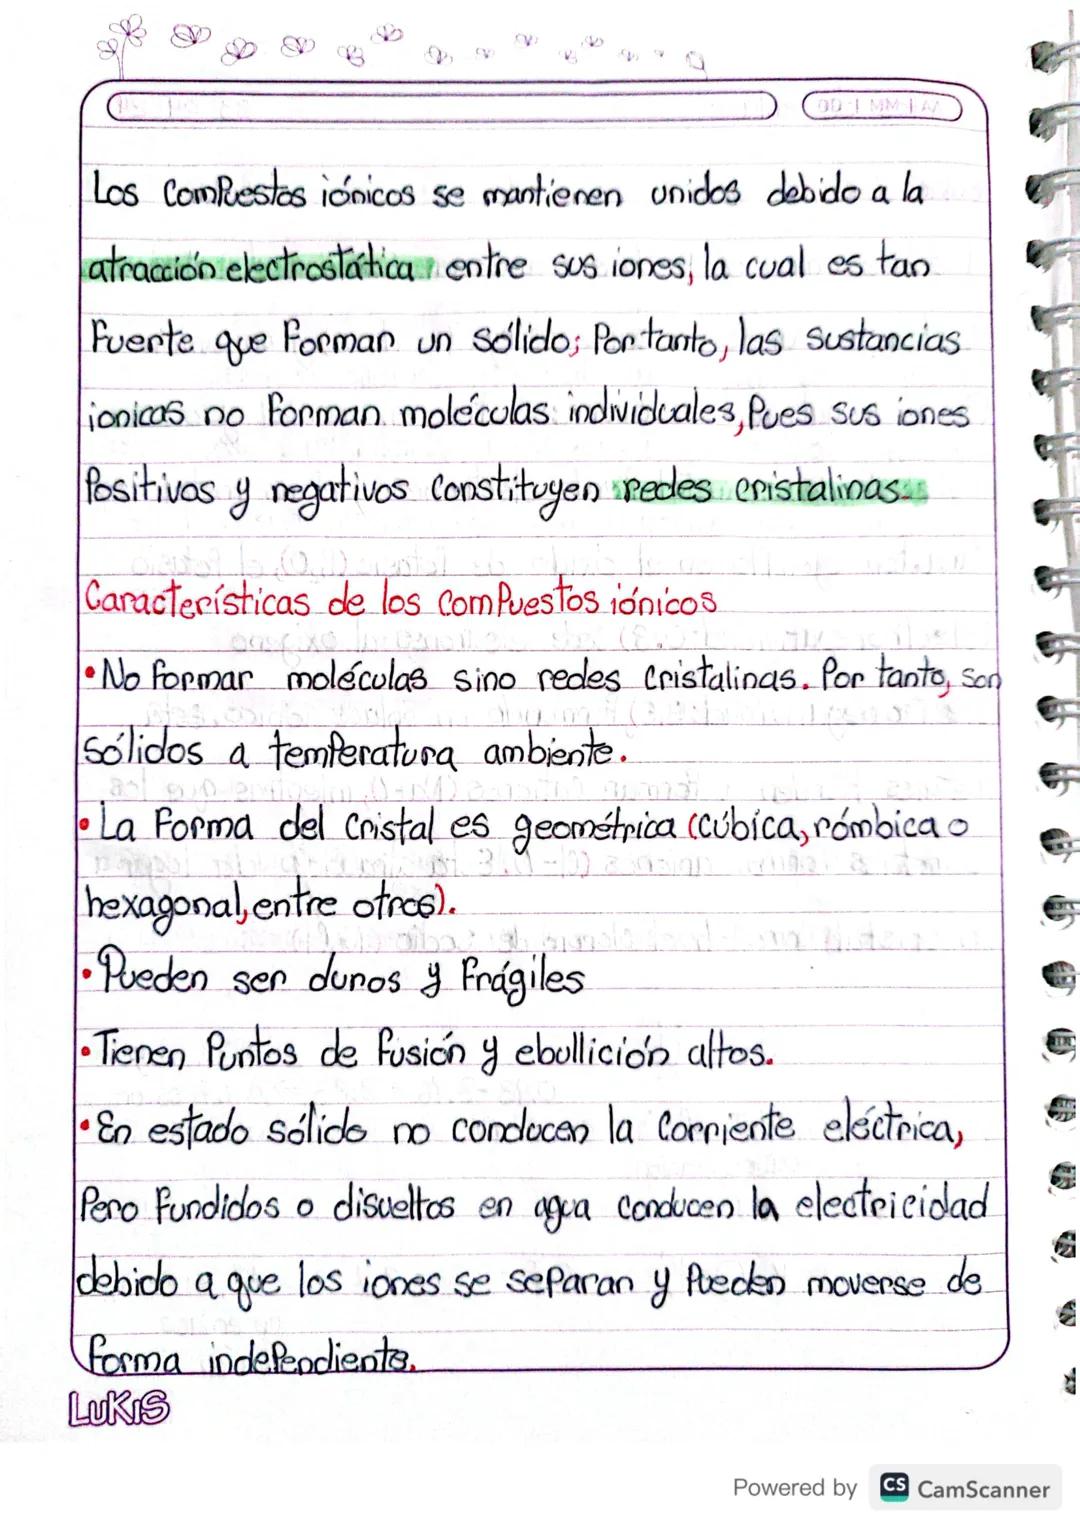 Los Compuestos iónicos se mantienen unidos debido a la
atracción electrostática entre sus iones, la cual es tan
Fuerte que Forman un Sólido; Por tanto, las sustancias
ionicas no Forman moléculas individuales, Pues sus iones
Positivos y negativos Constituyen redes cristalinas.
Características de los ComPuestos iónicos
•No Formar moléculas sino redes Cristalinas. Por tanto, son
sólidos a temperatura ambiente.
•La Forma del Cristal es geométrica (cúbica, rómbica o
hexagonal, entre otros).
•Pueden ser duros y Frágiles
•Tienen Puntos de Fusión y ebullición altos.
•En estado sólido no conducen la Corriente eléctrica,
Pero Fundidos o disueltos en agua Conducen la electricidad
debido a que los iones se separan y Pueden moverse de
Forma independiente.
LUKIS
Powered by CS CamScanner